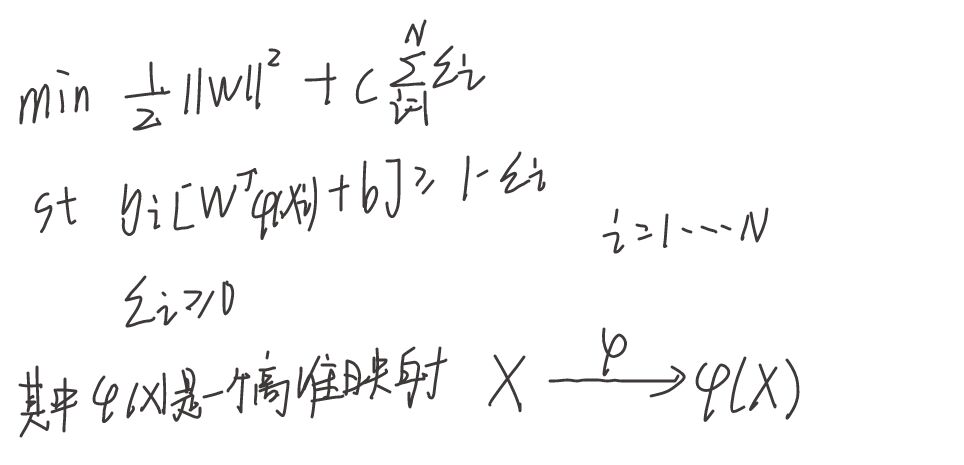 min 1/2 ||W||² + C ∑_{i=1}^{N} ξi
st yi[Wᵀφ(Xi)+b] ≥ 1-ξi
i=1---N
ξi≥0
其中φ(X)是一个高维映射 X —φ→ φ(X)